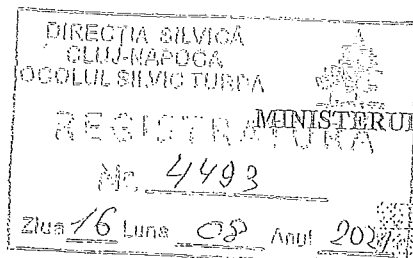 DIRECȚIA SILVICĂ
CLUJ-NAPOCA
OCOLUL SILVIC TURDA
MINISTERUL
REGISTRATURA
Nr. 4493
Ziua 16 Luna 08 Anul 2021